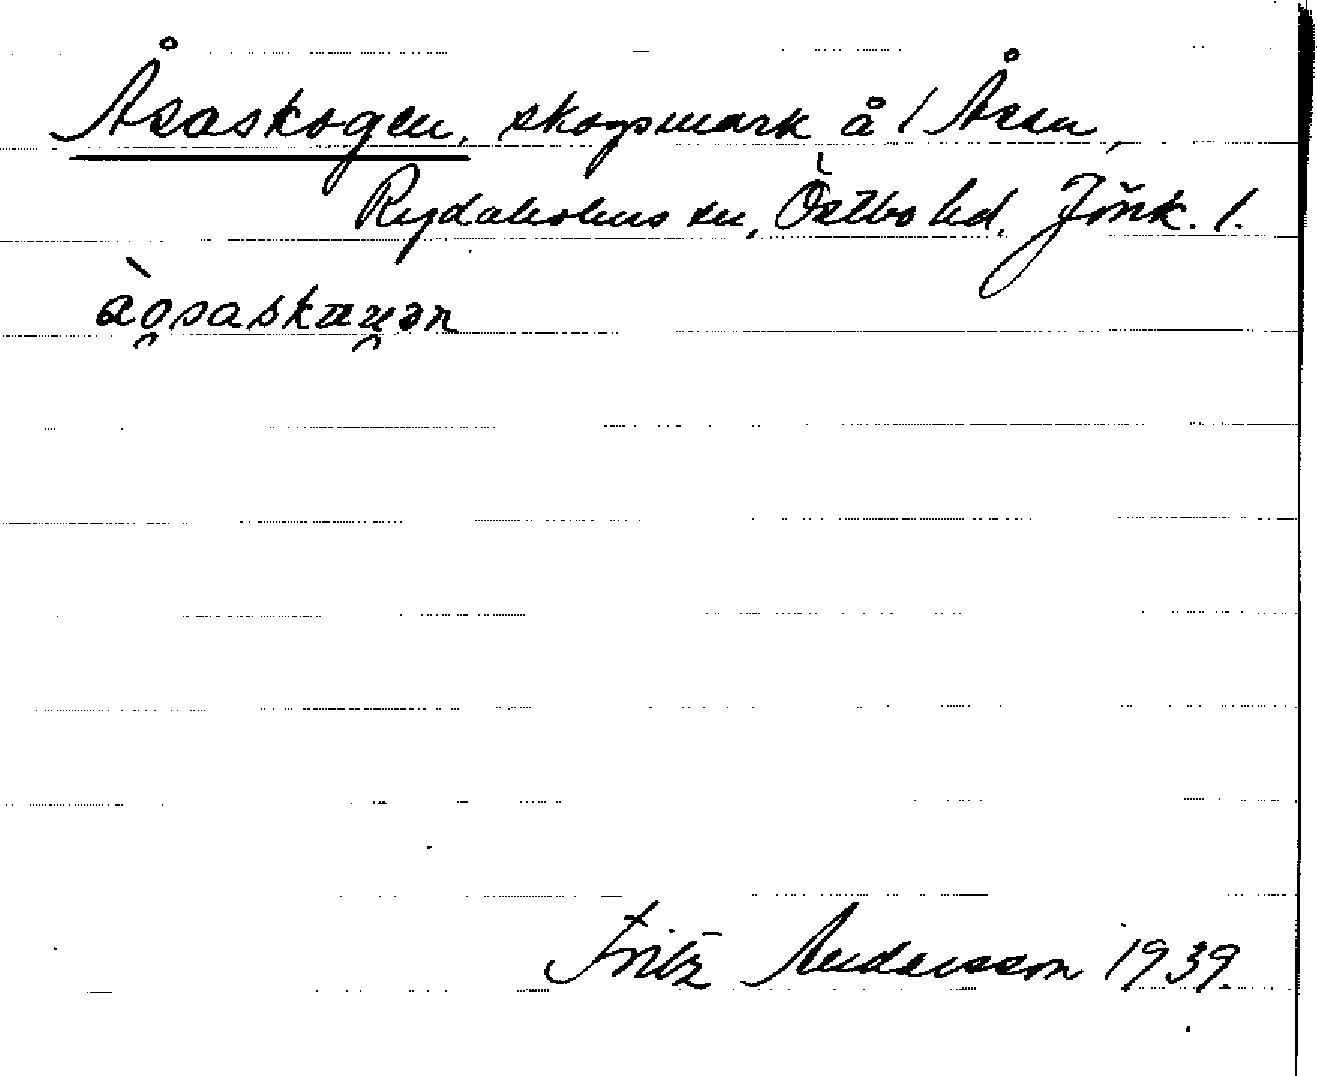 Åsaskogen, skogsmark å / Åsen,
Rydaholms sn, Östbo hd. Jönk. l.
Fritz Andersson 1939.